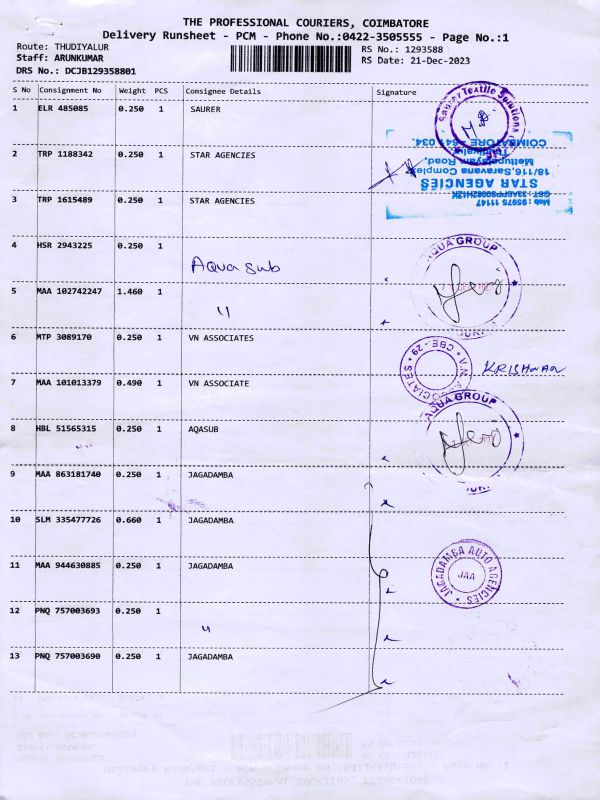 THE PROFESSIONAL COURIERS, COIMBATORE
Delivery Runsheet - PCM - Phone No.:0422-3505555 - Page No.:1
Route: THUDIYALUR RS No.: 1293588
Staff: ARUNKUMAR RS Date: 21-Dec-2023
DRS No.: DCJB129358801
S No Consignment No Weight PCS Consignee Details Signature
1 ELR 485085 0.250 1 SAURER
Saurer Textile Solutions
2 TRP 1188342 0.250 1 STAR AGENCIES
Mob : 95975 11147
STAR AGENCIES
18/116,Saravana Complex,
Mettupalayam Road,
COIMBATORE - 641 034.
3 TRP 1615489 0.250 1 STAR AGENCIES
4 HSR 2943225 0.250 1
Aqua sub
AQUA GROUP
5 MAA 102742247 1.460 1
"
6 MTP 3089170 0.250 1 VN ASSOCIATES
V.N. ASSOCIATES * CBE - 29 *
KRISHNAN
7 MAA 101013379 0.490 1 VN ASSOCIATE
8 HBL 51565315 0.250 1 AQASUB
AQUA GROUP
9 MAA 863181740 0.250 1 JAGADAMBA
10 SLM 335477726 0.660 1 JAGADAMBA
11 MAA 944630885 0.250 1 JAGADAMBA
JAGADAMBA AUTO AGENCIES *
JAA
12 PNQ 757003693 0.250 1
"
13 PNQ 757003690 0.250 1 JAGADAMBA